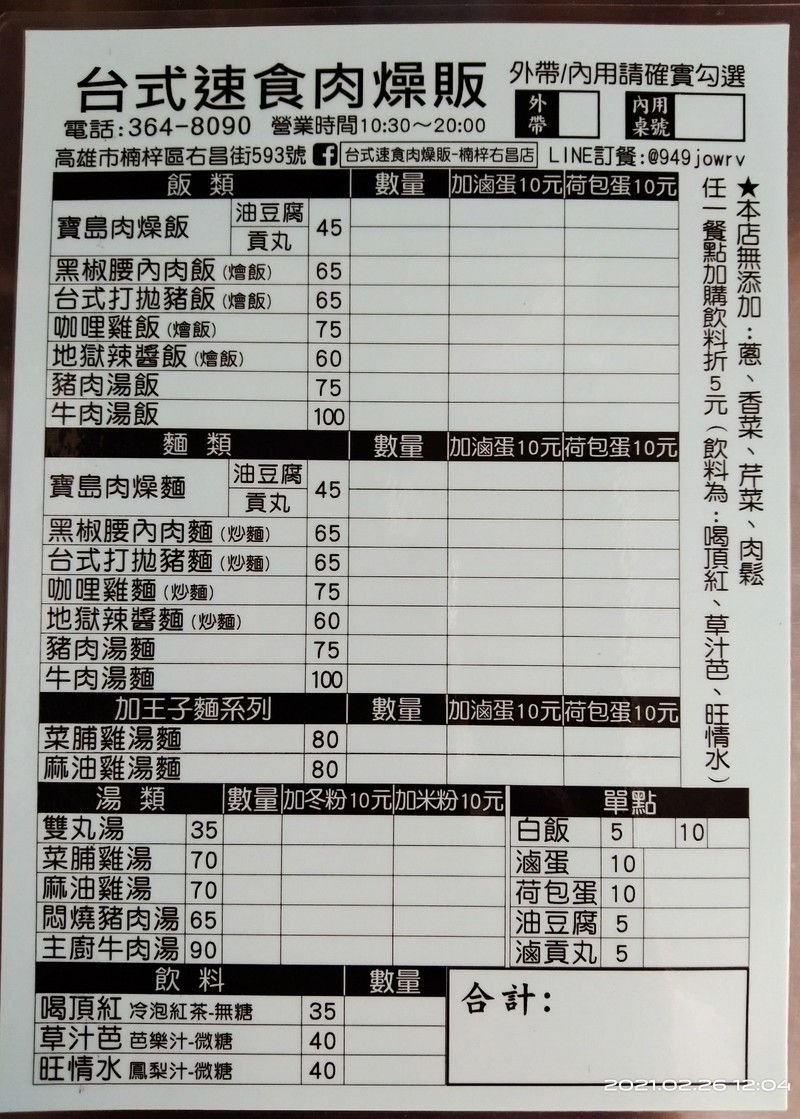 台式速食肉燥販
外帶/內用請確實勾選
外帶
內用桌號
電話:364-8090 營業時間10:30～20:00
高雄市楠梓區右昌街593號 台式速食肉燥販-楠梓右昌店 LINE訂餐:@949jowrv
★本店無添加：蔥、香菜、芹菜、肉鬆
任一餐點加購飲料折5元（飲料為：喝頂紅、草汁芭、旺情水）
飯類 數量 加滷蛋10元 荷包蛋10元
寶島肉燥飯 油豆腐 貢丸 45
黑椒腰內肉飯(燴飯) 65
台式打拋豬飯(燴飯) 65
咖哩雞飯(燴飯) 75
地獄辣醬飯(燴飯) 60
豬肉湯飯 75
牛肉湯飯 100
麵類 數量 加滷蛋10元 荷包蛋10元
寶島肉燥麵 油豆腐 貢丸 45
黑椒腰內肉麵(炒麵) 65
台式打拋豬麵(炒麵) 65
咖哩雞麵(炒麵) 75
地獄辣醬麵(炒麵) 60
豬肉湯麵 75
牛肉湯麵 100
加王子麵系列 數量 加滷蛋10元 荷包蛋10元
菜脯雞湯麵 80
麻油雞湯麵 80
湯類 數量 加冬粉10元 加米粉10元
雙丸湯 35
菜脯雞湯 70
麻油雞湯 70
悶燒豬肉湯 65
主廚牛肉湯 90
單點
白飯 5 10
滷蛋 10
荷包蛋 10
油豆腐 5
滷貢丸 5
飲料 數量
喝頂紅 冷泡紅茶-無糖 35
草汁芭 芭樂汁-微糖 40
旺情水 鳳梨汁-微糖 40
合計：
2021.02.26 12:04